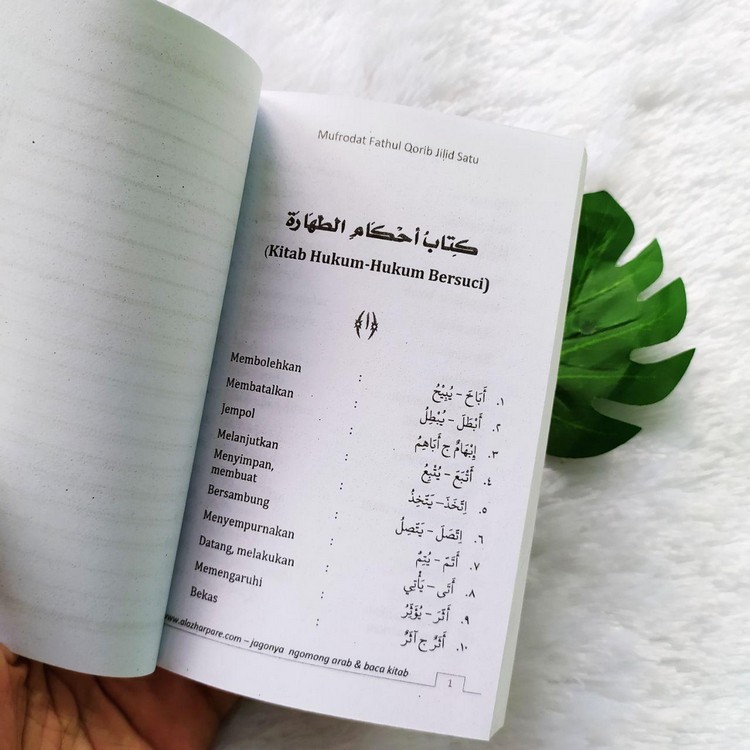 Mufrodat Fathul Qorib Jilid Satu
كِتَابُ أَحْكَامِ الطَّهَارَةِ
(Kitab Hukum-Hukum Bersuci)
﴿ا﴾
Membolehkan : ١. أَبَاحَ – يُبِيْحُ
Membatalkan : ٢. أَبْطَلَ – يُبْطِلُ
Jempol : ٣. إِبْهَامٌ ج أَبَاهِمُ
Melanjutkan : ٤. أَتْبَعَ – يُتْبِعُ
Menyimpan, membuat : ٥. اِتَّخَذَ – يَتَّخِذُ
Bersambung : ٦. اِتَّصَلَ – يَتَّصِلُ
Menyempurnakan : ٧. أَتَمَّ – يُتِمُّ
Datang, melakukan : ٨. أَتَى – يَأْتِي
Memengaruhi : ٩. أَثَّرَ – يُؤَثِّرُ
Bekas : ١٠. أَثَرٌ ج آثَرٌ
www.alazharpare.com – jagonya ngomong arab & baca kitab
1